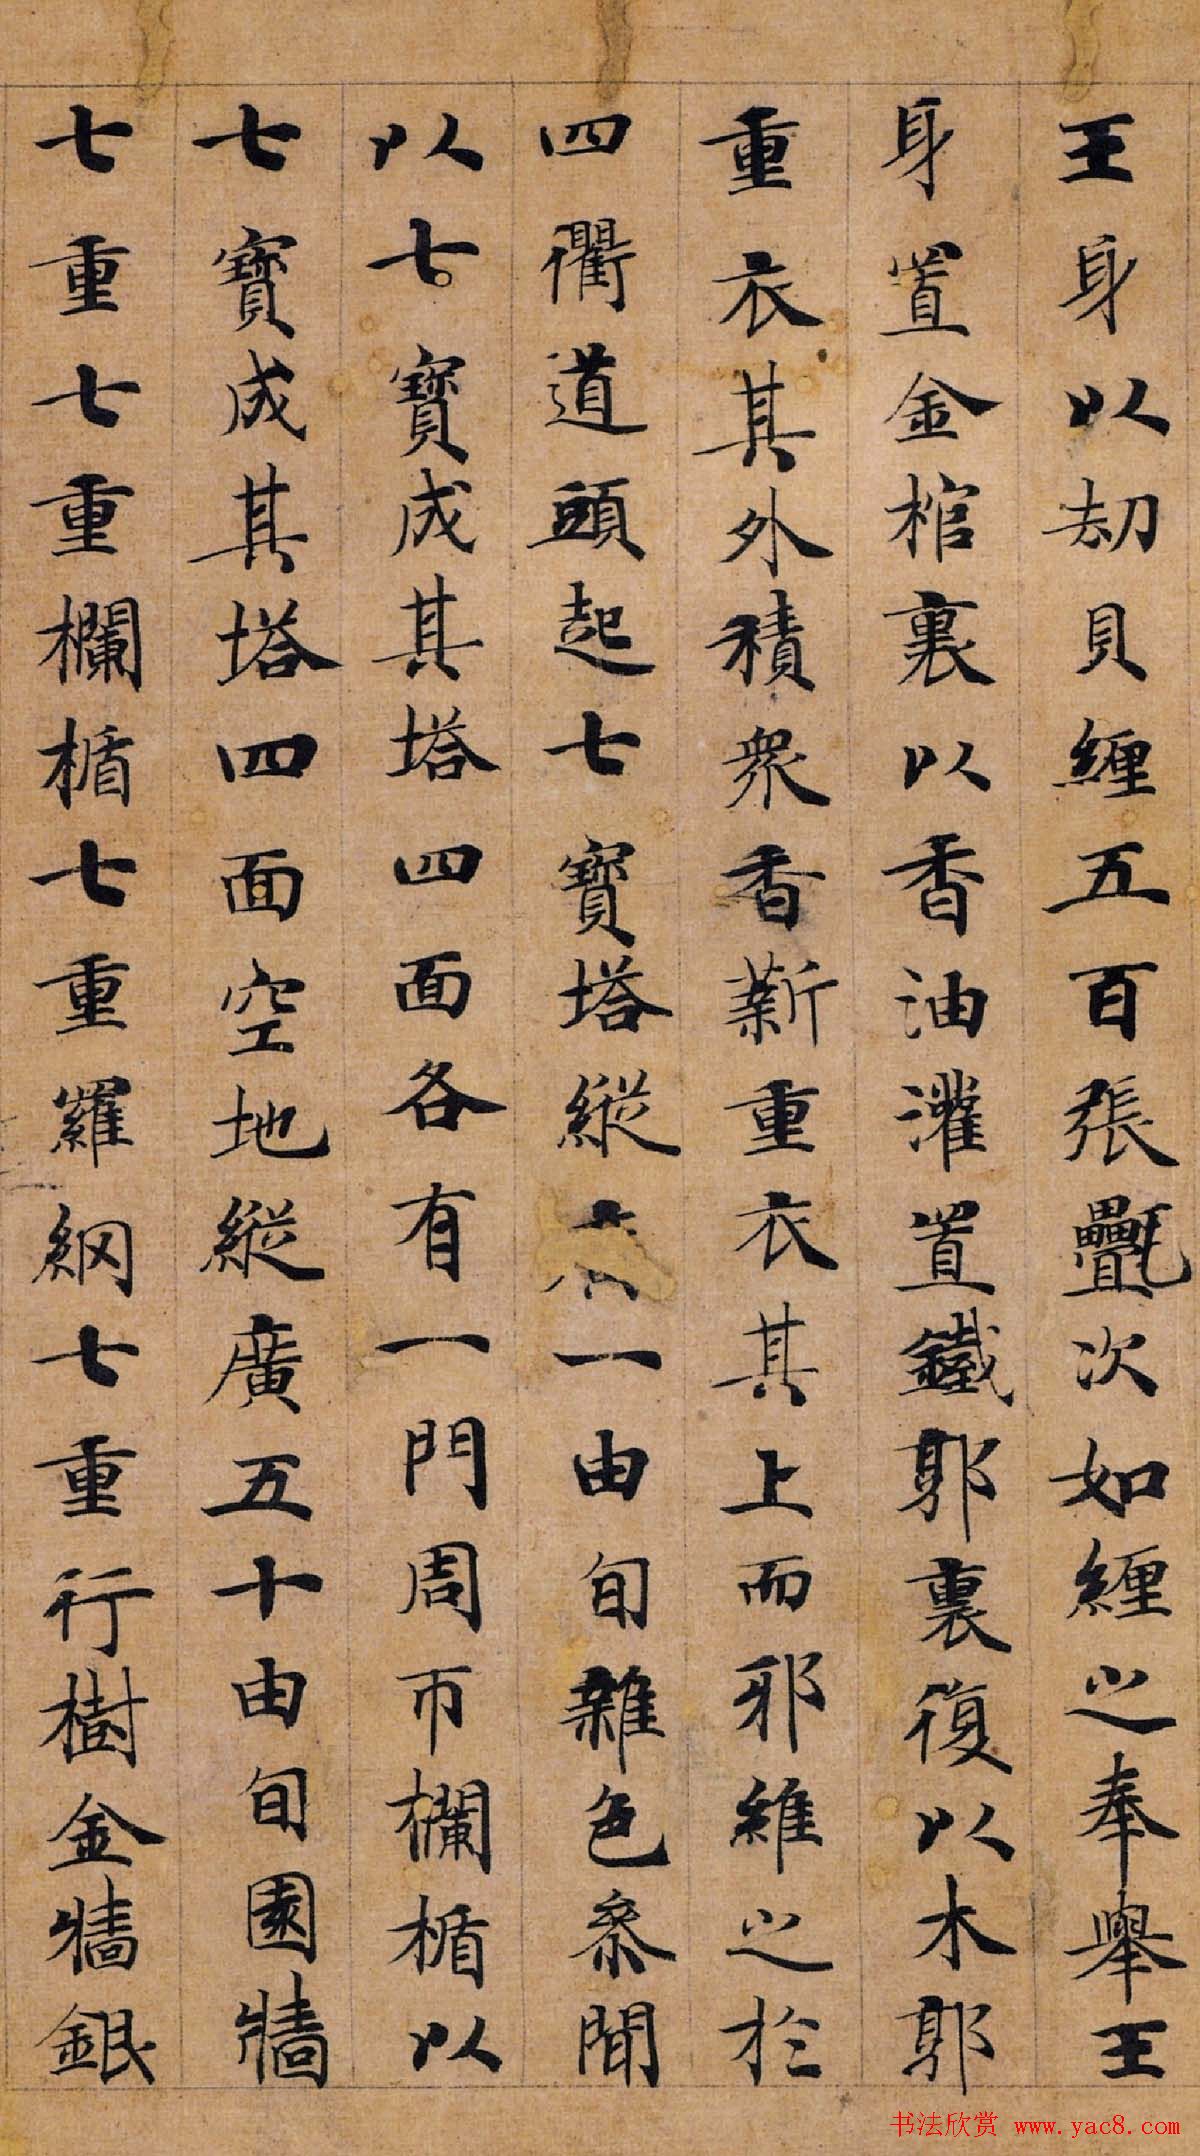 王身以劫貝纏五百張㲲次如纏之奉舉王
身置金棺裏以香油灌置鐵郭裏復以木郭
重衣其外積衆香薪重衣其上而耶維之於
四衢道頭起七寶塔縱一由旬雜色叅間
以七寶成其塔四面各有一門周帀欄楯以
七寶成其塔四面空地縱廣五十由旬園牆
七重七重欄楯七重羅網七重行樹金牆銀
书法欣赏 www.yac8.com